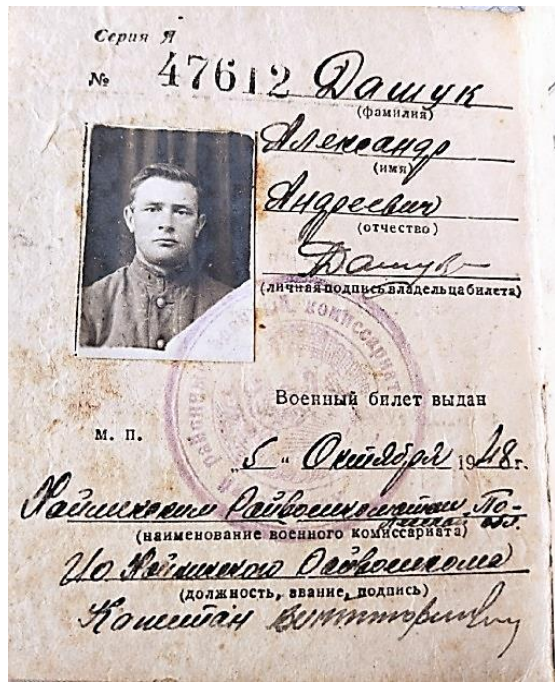 Серия Я
№ 47612 Дашук
(фамилия)
Александр
(имя)
Андреевич
(отчество)
Дашук
(личная подпись владельца билета)
Военный билет выдан
М. П.
„5“ Октября 1948 г.
Райвоенкоматом
(наименование военного комиссариата)
Райвоенкома
(должность, звание, подпись)
Капитан